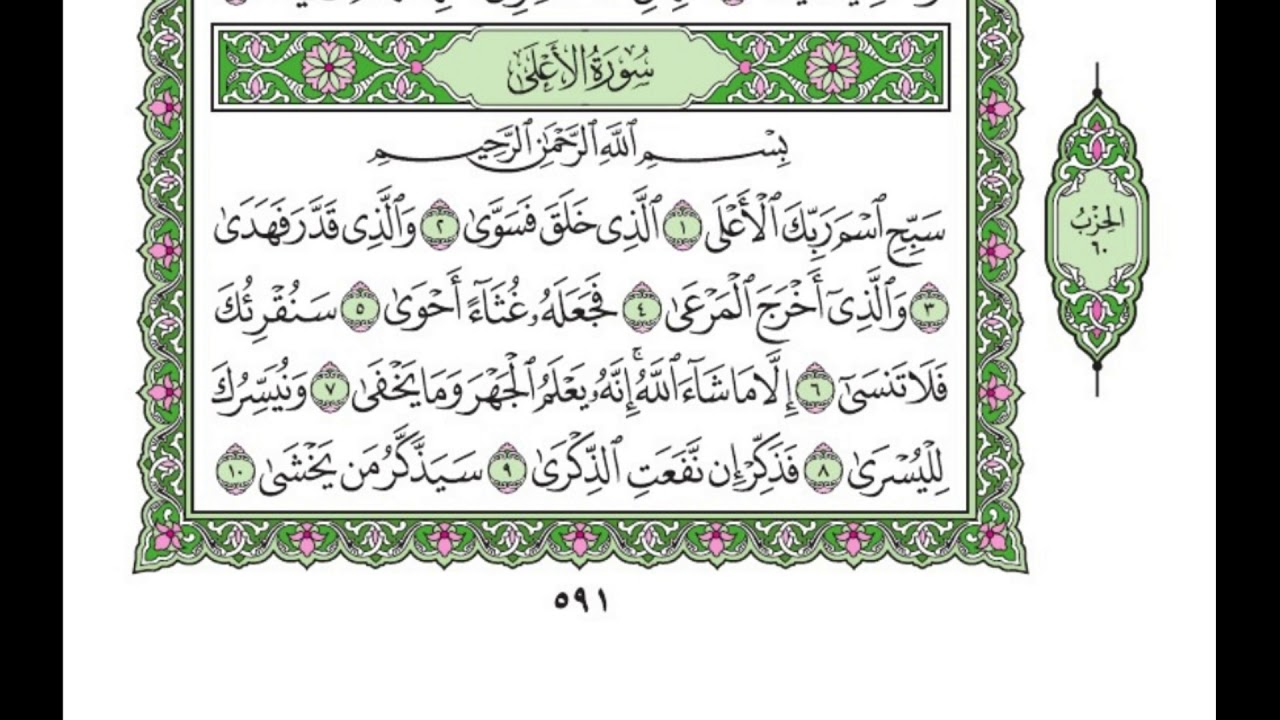 سُورَةُ الأَعْلَى
بِسْمِ ٱللَّهِ ٱلرَّحْمَٰنِ ٱلرَّحِيمِ
سَبِّحِ ٱسْمَ رَبِّكَ ٱلْأَعْلَى ١ ٱلَّذِى خَلَقَ فَسَوَّىٰ ٢ وَٱلَّذِى قَدَّرَ فَهَدَىٰ
٣ وَٱلَّذِىٓ أَخْرَجَ ٱلْمَرْعَىٰ ٤ فَجَعَلَهُۥ غُثَآءً أَحْوَىٰ ٥ سَنُقْرِئُكَ
فَلَا تَنسَىٰٓ ٦ إِلَّا مَا شَآءَ ٱللَّهُ ۚ إِنَّهُۥ يَعْلَمُ ٱلْجَهْرَ وَمَا يَخْفَىٰ ٧ وَنُيَسِّرُكَ
لِلْيُسْرَىٰ ٨ فَذَكِّرْ إِن نَّفَعَتِ ٱلذِّكْرَىٰ ٩ سَيَذَّكَّرُ مَن يَخْشَىٰ ١٠
الحِزْبُ
٦٠
٥٩١